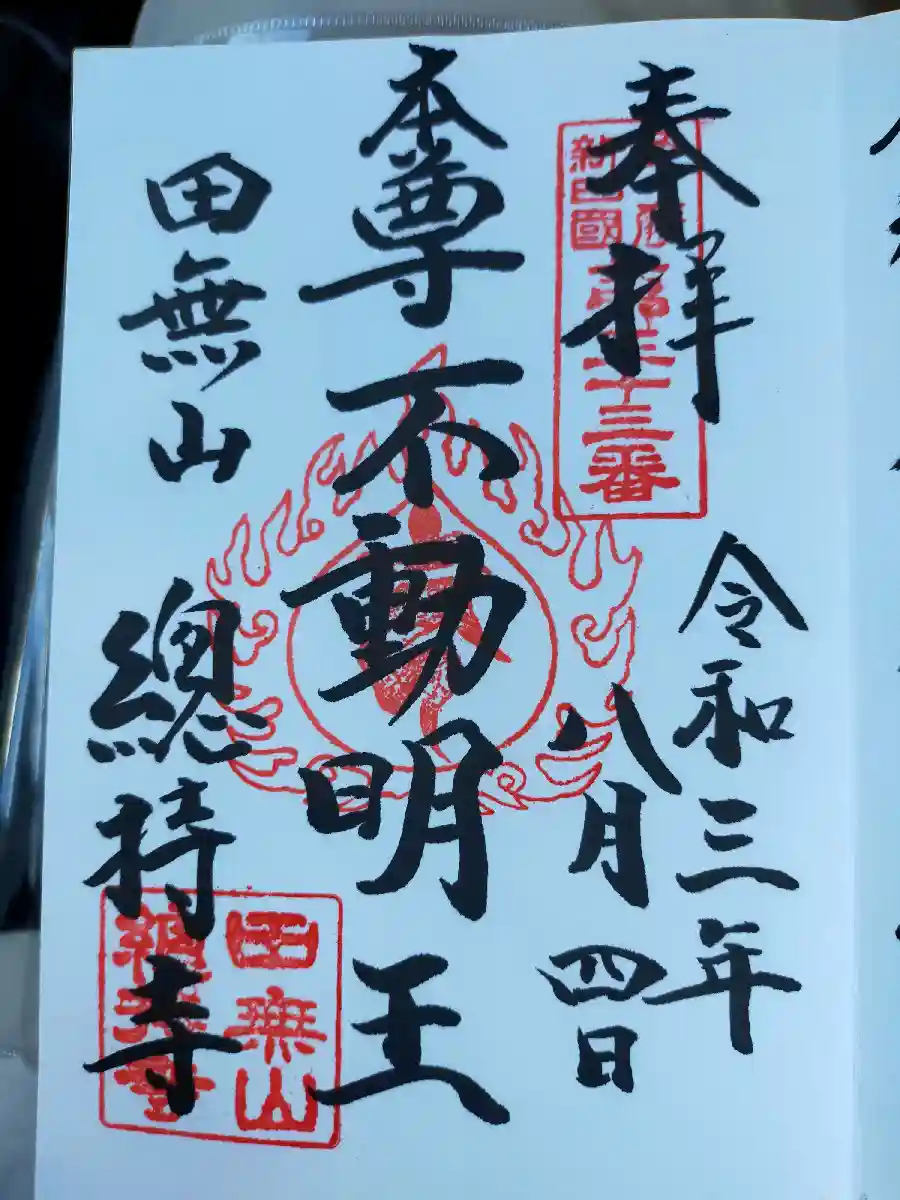 奉拝
令和三年
八月四日
本尊不動明王
田無山
總持寺
新四國
第三十三番
田無山